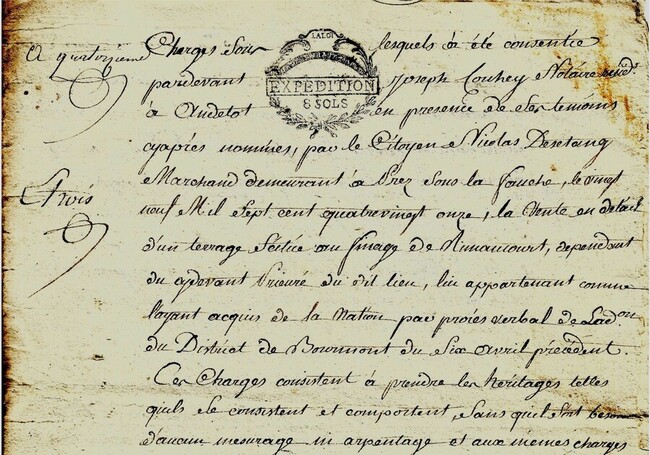 LA LOI
EXPEDITION
8 SOLS
Charges sous lesquels à été consentie
pardevant Joseph Couhey Notaire resid.
à Andelot en presence de ses temoins
cyaprès nommés, par le Citoyen Nicolas Desetang
Marchand demeurant à Prez sous la fauche, le vingt
neuf Mil Sept cent quatrevingt onze, la Vente en detail
d'un terrage scitué au finage de Rimaucourt, dependant
du cydevant Prieuré du dit lieu, lui appartenant comme
l'ayant acquis de la Nation par procès verbal de L'ad.on
du District de Bourmont du Six avril précédent.
Ces Charges consistent à prendre les héritages telles
quils se consistent et comportent, sans quil soit besoin
d'aucun mesurage ni arpentage et aux memes charges